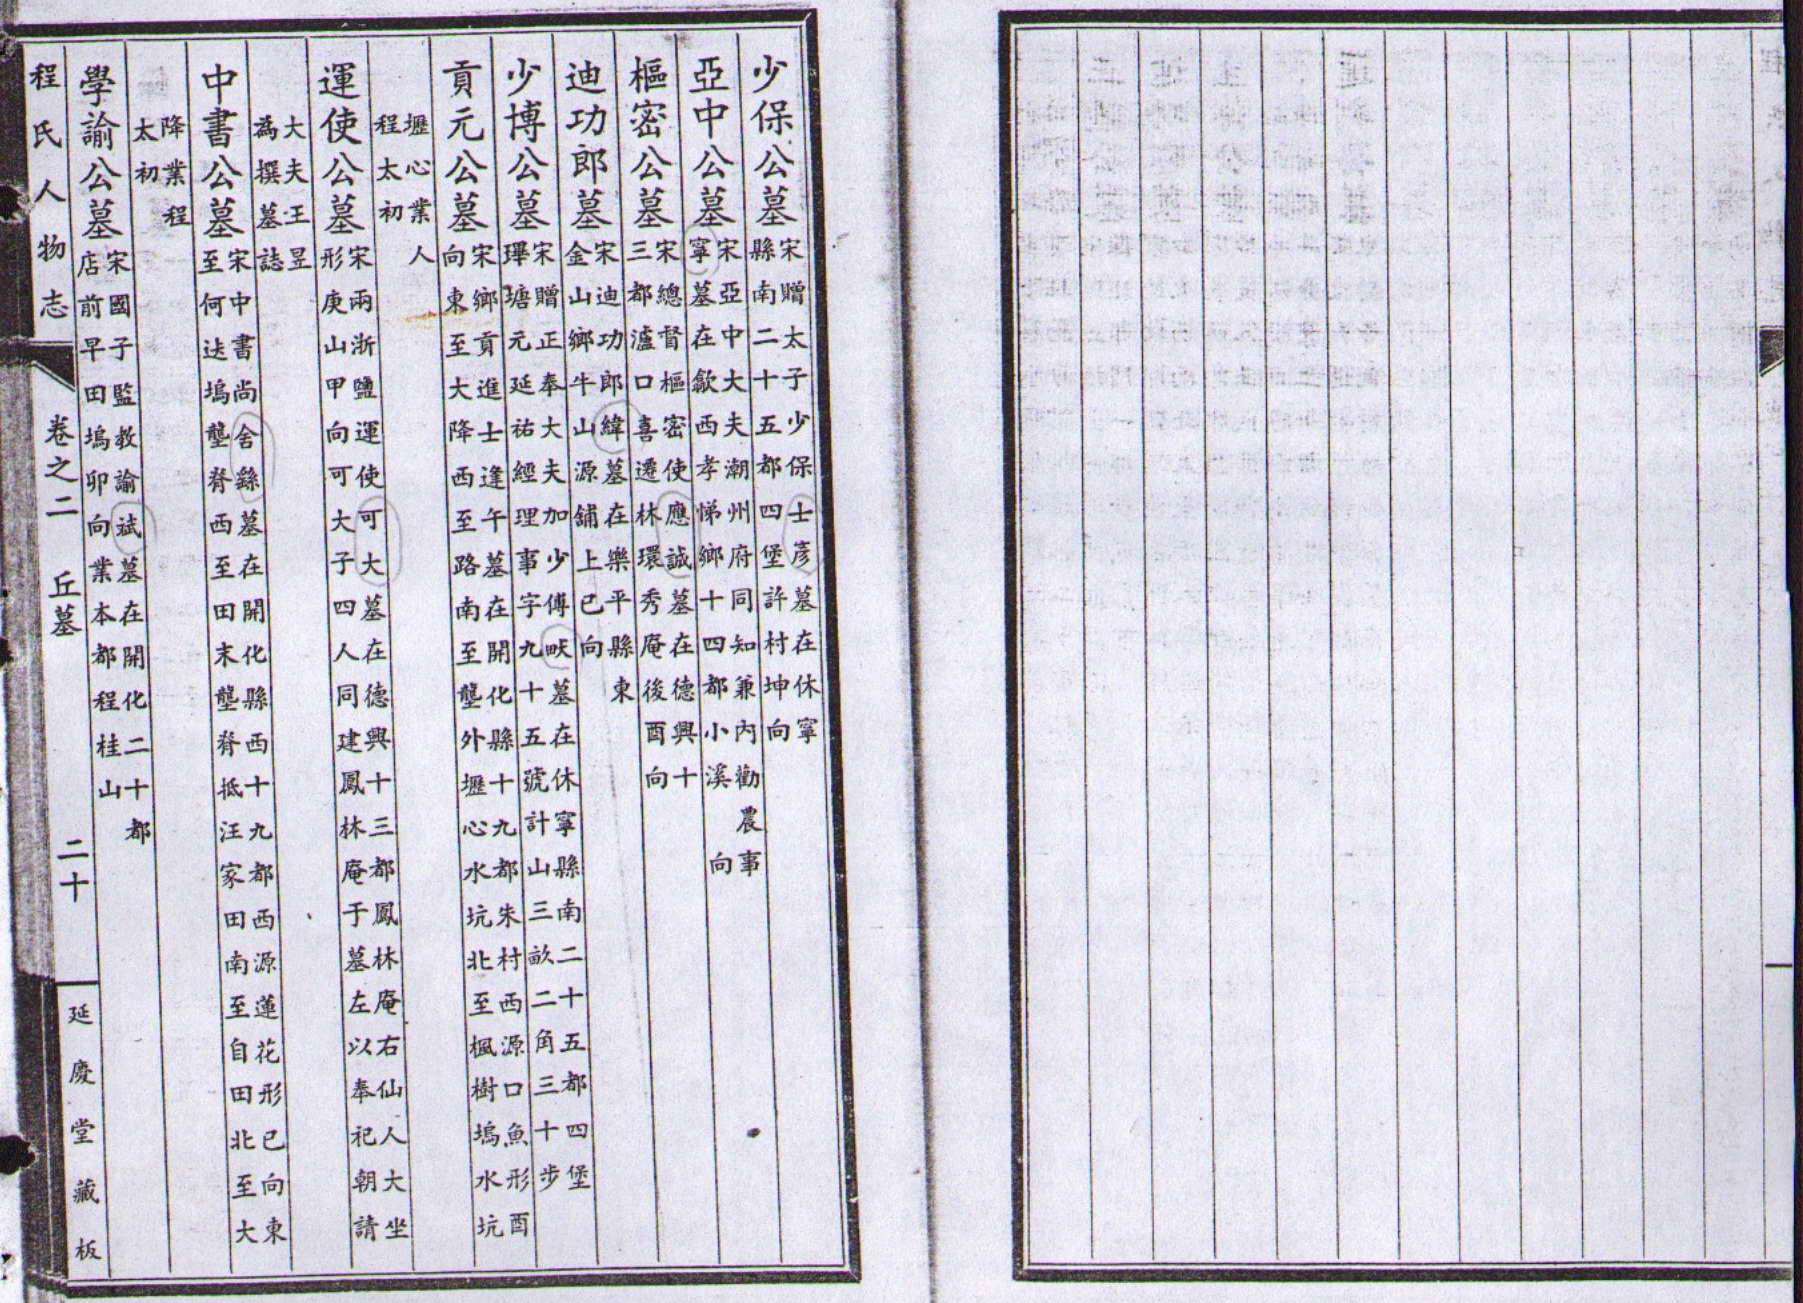 少保公墓 宋贈太子少保士彥墓在休寧
縣南二十五都四堡許村坤向
亞中公墓 宋亞中大夫潮州府同知兼內勸農事
寧墓在歙西孝悌鄉十四都小溪 向
樞密公墓 宋總督樞密使應誠墓在德興十
三都瀘口喜遷林環秀庵後酉向
迪功郎墓 宋迪功郎緯墓在樂平縣東
金山鄉牛山源鋪上巳向
少博公墓 宋贈正奉大夫加少傅畎墓在休寧縣南二十五都四堡
琿塘元延祐經理事字九十五號計山三畝二角三十步
貢元公墓 宋鄉貢進士逢午墓在開化縣十九都朱村西源口魚形酉
向東至大降西至路南至壟外壢心水坑北至楓樹塢水坑
壢心業人
程太初
運使公墓 宋兩浙鹽運使可大墓在德興十三都鳳林庵右仙人大坐
形庚山甲向可大子四人同建鳳林庵于墓左以奉祀朝請
大夫王昱
為撰墓誌
中書公墓 宋中書尚舍繇墓在開化縣西十九都西源蓮花形巳向東
至何达塢壟脊西至田末壟脊抵汪家田南至自田北至大
降業程
太初
學諭公墓 宋國子監教諭斌墓在開化二十都
店前早田塢卯向業本都程桂山
程氏人物志 卷之二 丘墓 二十 延慶堂藏板